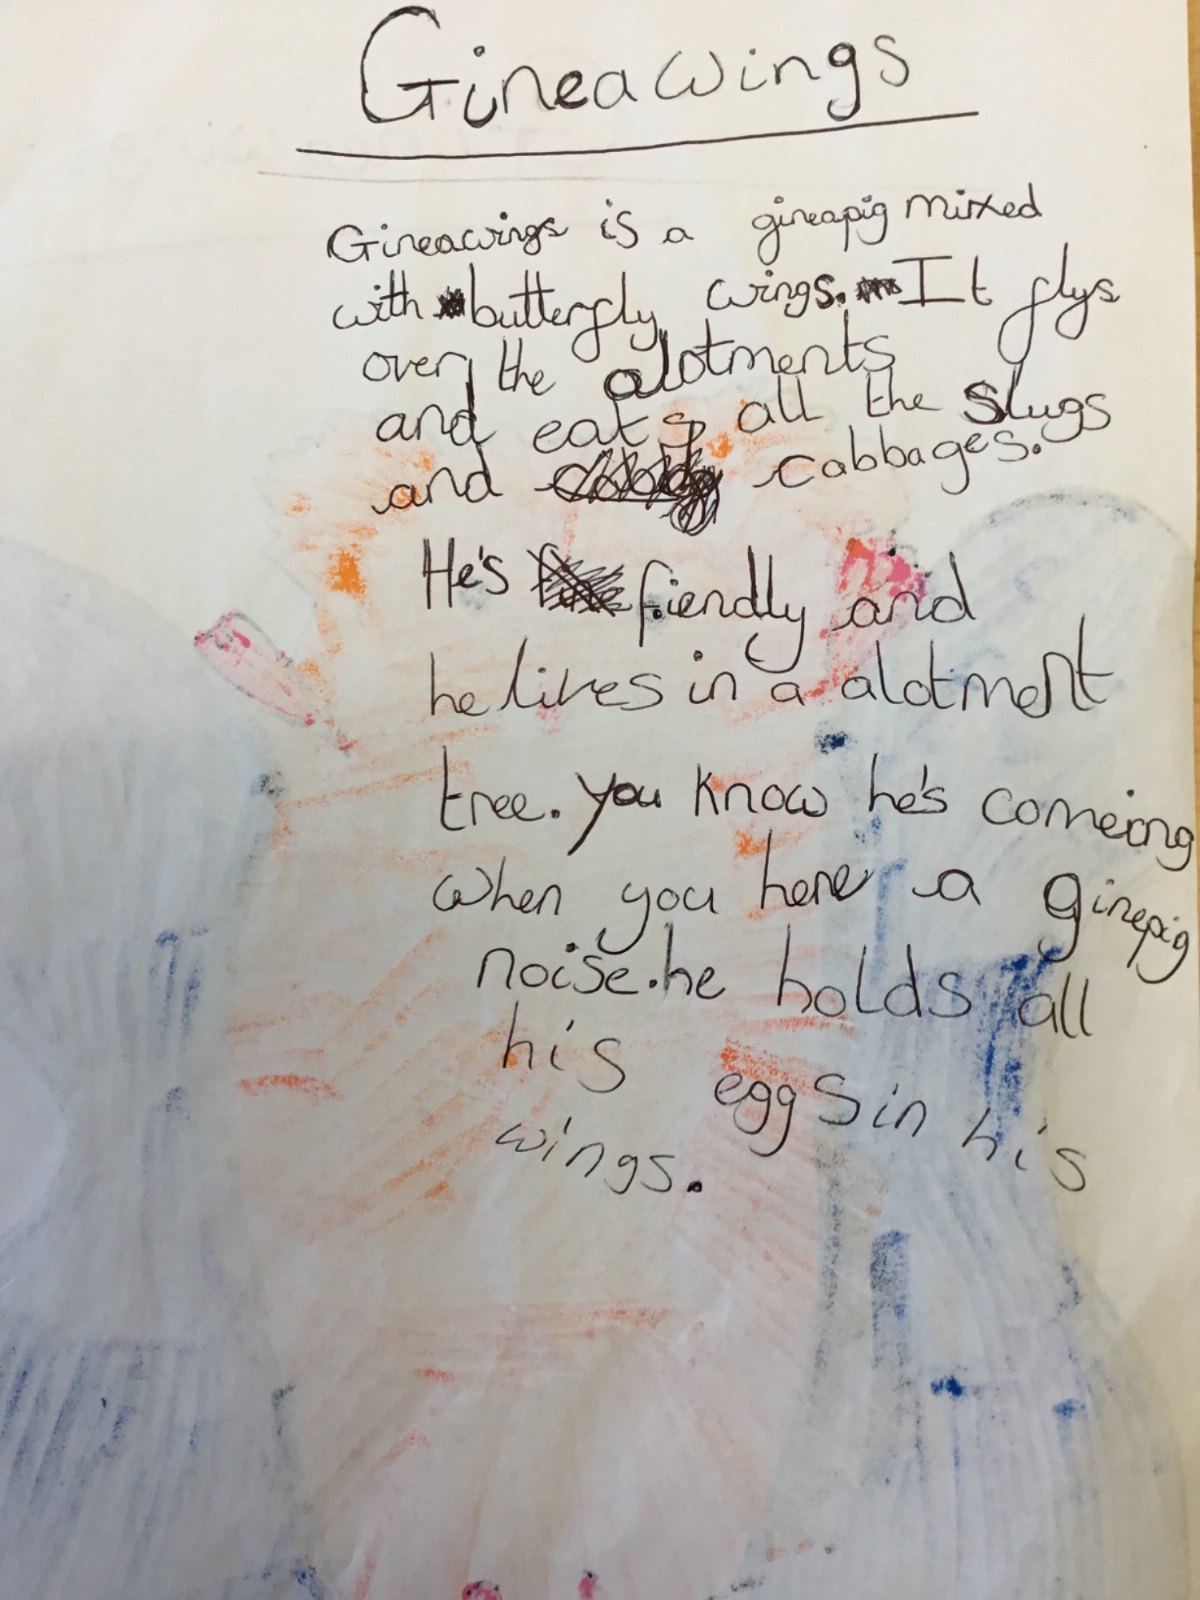 Gineawings
Gineawings is a gineapig mixed
with butterfly wings. It flys
over the alotments
and eats all the slugs
and cabbages.
He's fiendly and
he lives in a alotment
tree. you know he's comeing
when you here a ginepig
noise. he holds all
his eggs in his
wings.